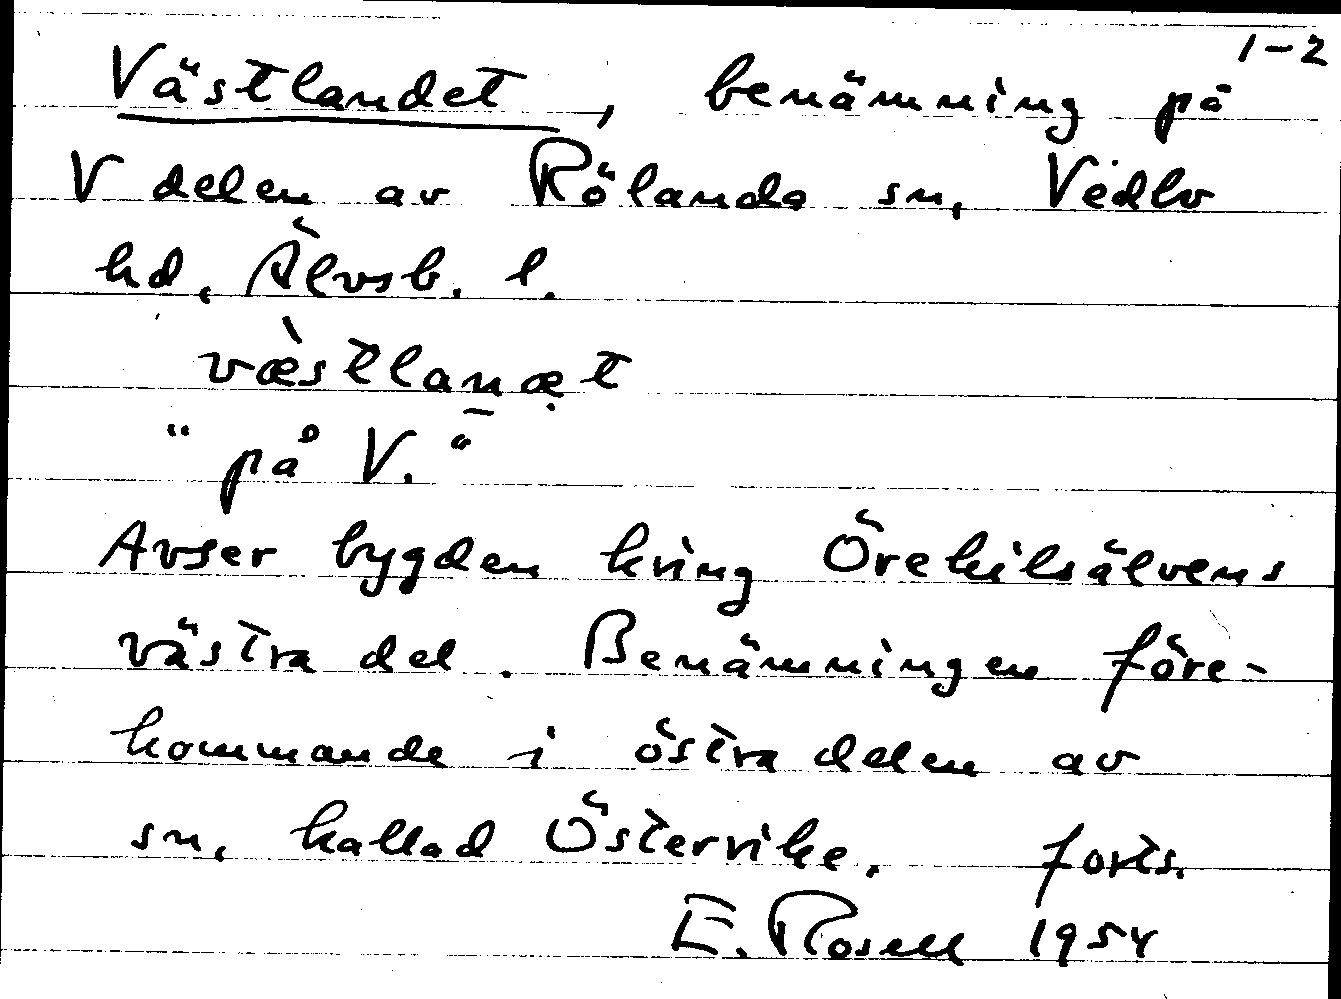 1-2
Västlandet, benämning på
V delen av Rölanda sn, Vedbo
hd, Älvsb. l.
væ̀stlanæt
"på V."
Avser bygden kring Örekilsälvens
västra del. Benämningen före-
kommande i östra delen av
sn, kallad Östervike. forts.
E. Rosell 1954